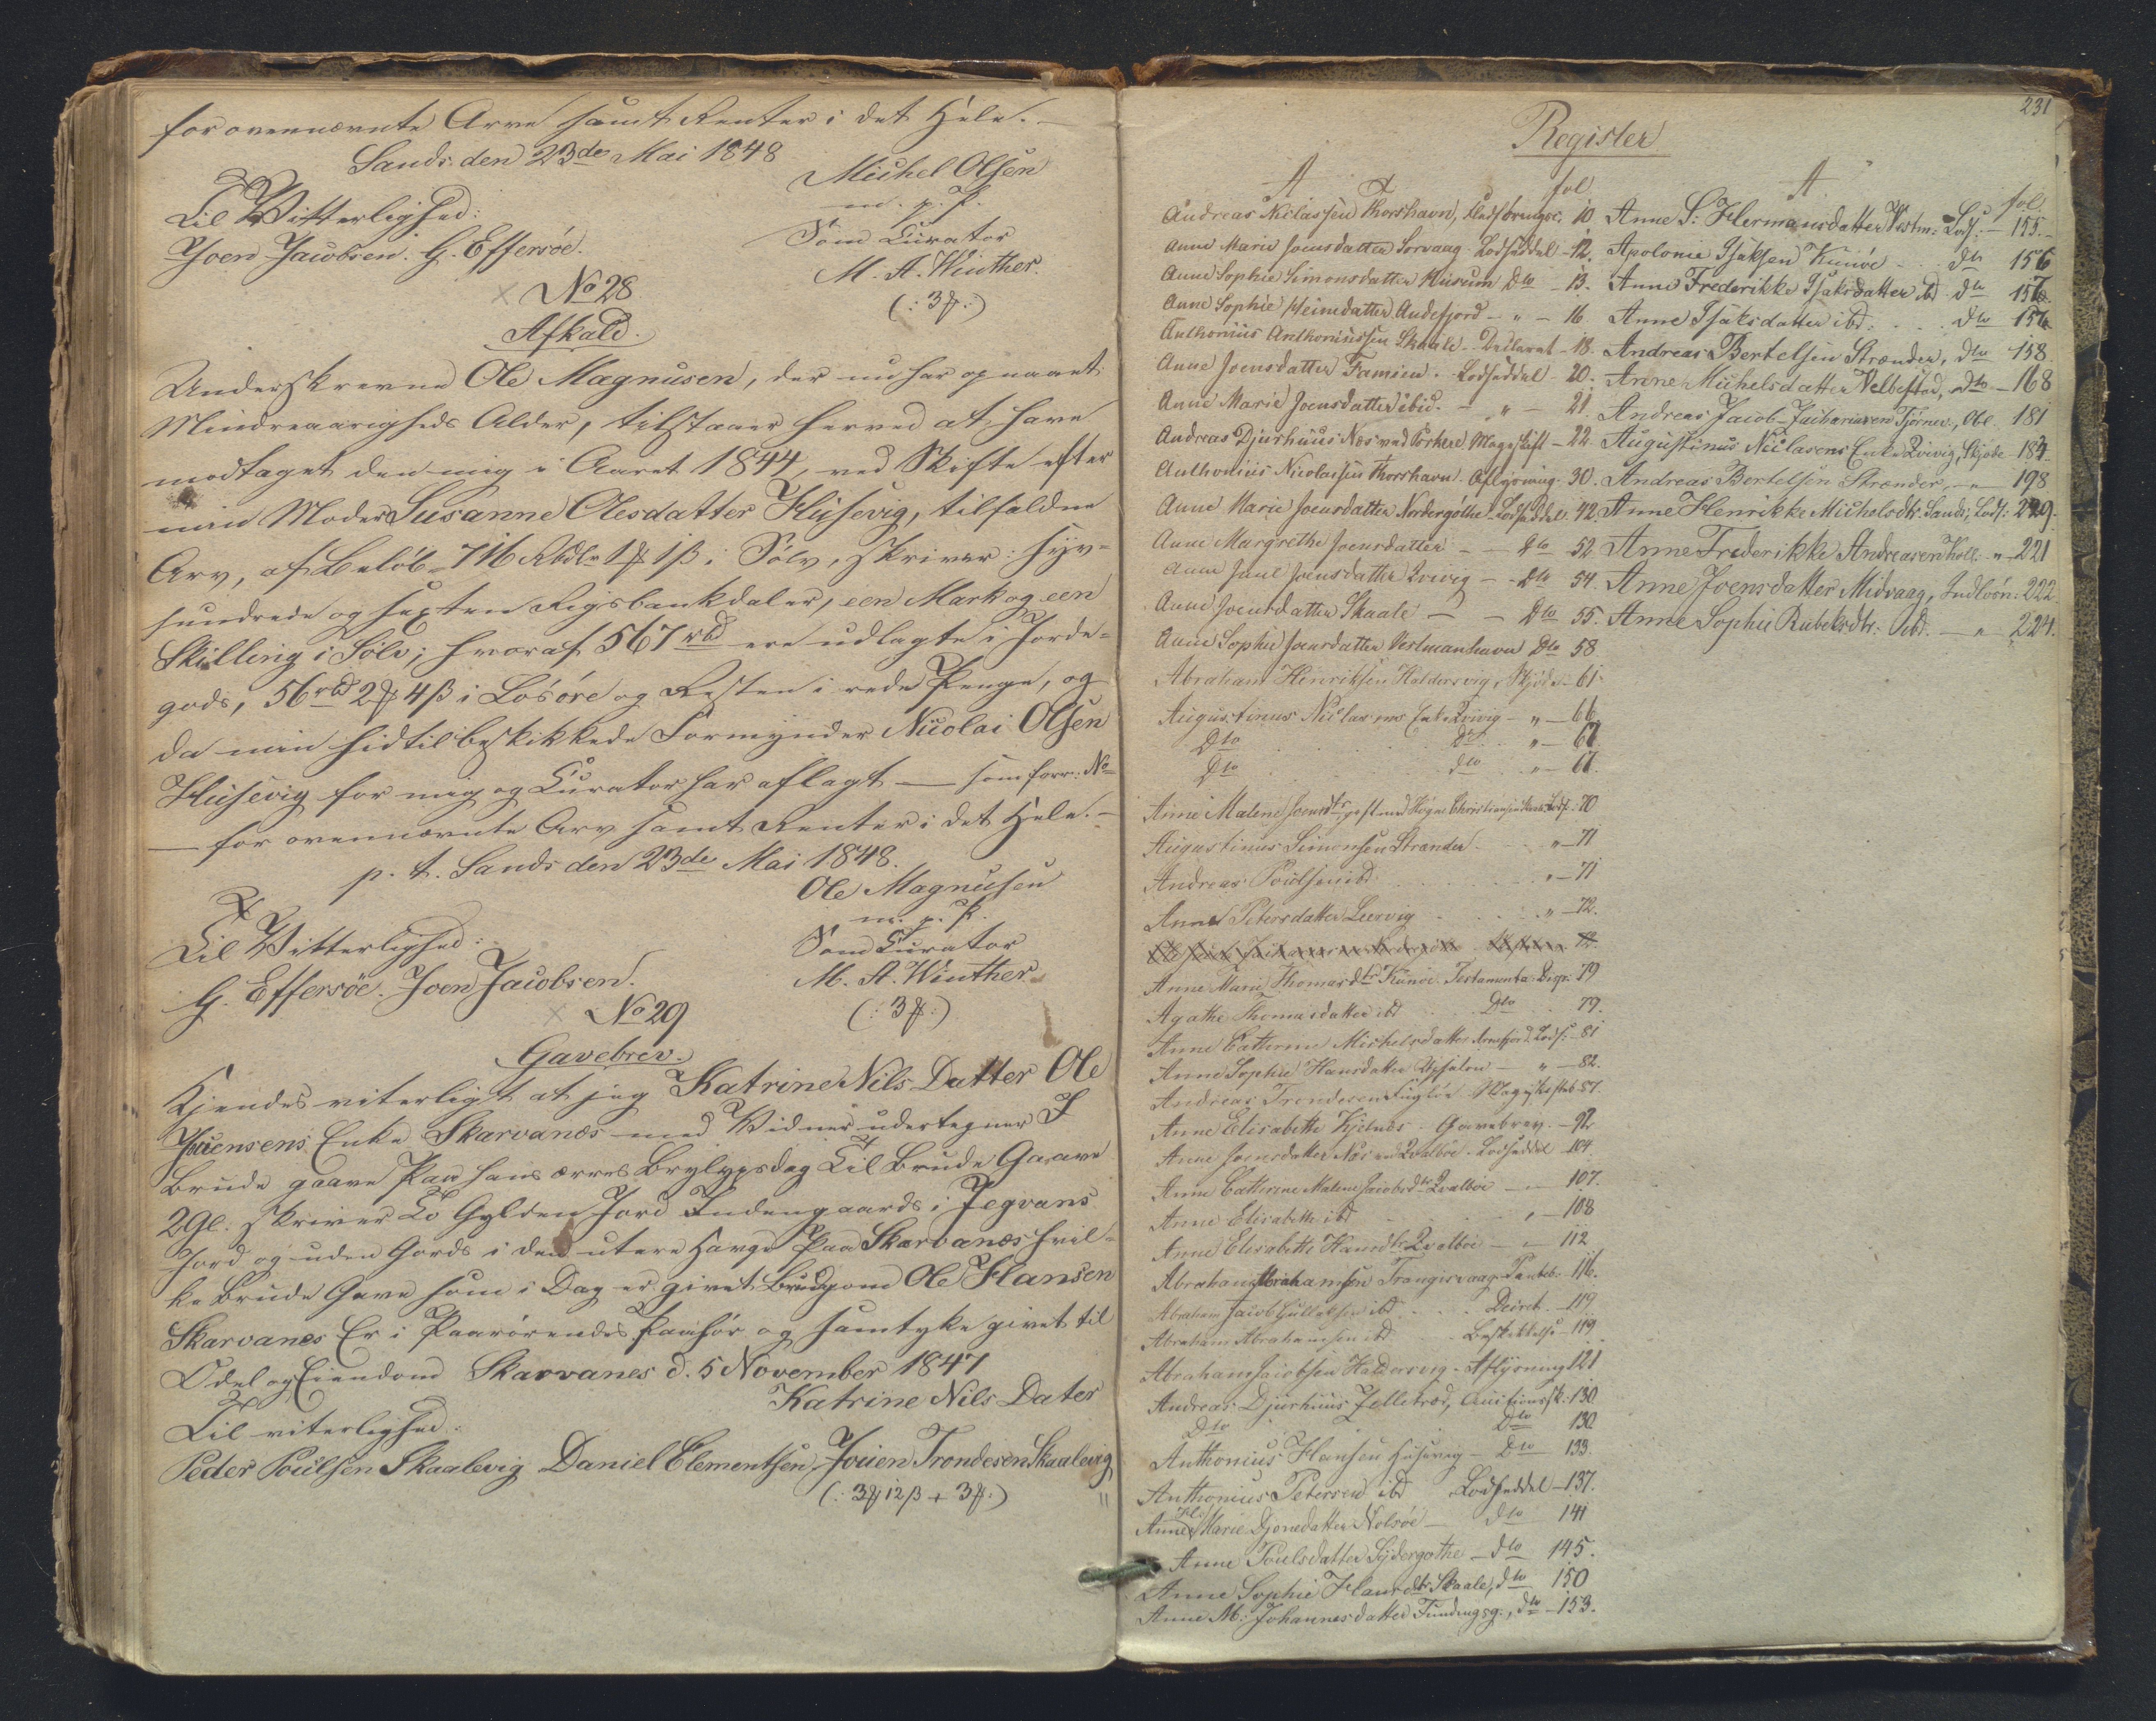 for ovennævnte Arv samt Renter i det Hele. —
Sands den 23de Mai 1848
Michel Olsen
m. p. P.
Til Vitterlighed:
Som Curator
Joen Jacobsen. G. Effersöe.
M. A. Winther.
No 28
(: 3 ₰ :)
Afkald.
Underskrevne Ole Magnusen, der nu har opnaaet
Mindreaarigheds Alder, tilstaaer herved at have
modtaget den mig i Aaret 1844, ved Skifte efter
min Moder Susanne Olesdatter Húsevig, tilfaldne
Arv, af Beløb 716 Rbdlr 1 ₰ 1 ß i Sølv, skriver: syv-
hundrede og sexten Rigsbankdaler, een Mark og een
Skilling i Sölv; hvoraf 567 rbd ere udlagte i Jorde-
gods, 56 rbd 2 ₰ 4 ß i Losöre og Resten i rede Penge, og
da min hidtil beskikkede Formynder Nicolai Olsen
Húsevig for mig og Curator har aflagt — som forr. No
— for ovennævnte Arv samt Renter i det Hele. —
p. t. Sands den 23de Mai 1848.
Ole Magnusen
m. p. P.
Til Vitterlighed:
Som Curator
G. Effersöe. Joen Jacobsen.
M. A. Winther.
No 29
(: 3 ₰ :)
Gavebrev.
Kjendes viterligt at jeg Katrine Nils Datter Ole
Jouensens Enke Skarvanes med Vidner udertegner I
Brude gaave Paa hans ærres Brylypsdag Til Brude Gaave
2 Gl. skriver To Gylden Jord Indengaards i Jegvans
Jord og uden Gords i den utere Hauge Paa Skarvanes hvil-
ke Brude Gave som i Dag er givet Brudgom Ole Hansen
Skarvanes Er i Paarörendes Paahör og samtyke givet til
Odel og Eiendom Skarvanes d. 5 November 1847
Katrine Nils Dater
Til viterlighed:
Peder Poulsen Skaalevig Daniel Clementsen, Jouen Trondesen Skaalevig
(: 3 ₰ 12 ß + 3 ₰ :)
231
Register
A fol
Andreas Niclassen Thorshavn, 10.
Anne Marie Joensdatter Sorvaag Lodseddel - 12.
Anne Sophie Simonsdatter Húsum Dto - 13.
Anne Sophie Heinedatter Andefjord - " - 16
Anthonius Anthoniussen Skaale - Declarat - 18.
Anne Joensdatter Famien. Lodseddel - 20.
Anne Marie Joensdatter ibid. - " - 21
Andreas Djurhuus Næs ved Porkere Mageskift - 22.
Anthonius Nicolaisen Thorshavn. Aflysning. 30.
Anne Marie Joensdatter Nordregöthe Lodseddel. 42.
Anne Margrethe Joensdatter - - Dto 52
Anne Joensdatter Qvivig - Dto 54.
Anne Joensdatter Skaale - - Dto 55.
Anne Sophie Joensdatter Vestmanhavn Dto 58
Abraham Henriksen Haldersvig, Skjöde - 61.
Augustinus Niclasens Enke Qvivig - " - 66.
Dto Dto " - 67.
Dto dto " - 68.
Anne Malene Joensdtr gift med Högne Christiansen Lods. 70
Augustinus Simonsen Strænder " - 71
Andreas Poulsen ibd. " - 71
Anne Petersdatter Leervig " - 72.
72.
Anne Marie Thomasdtr Kunöe. Testamenta. Disp. 79
Agathe Thomasdatter ibd Dto 79.
Anne Cathrine Michelsdatter Arnefjord. Lods: - 81
Anne Sophie Hansdatter - " - 82.
Andreas Trondesen Fuglöe. Mageskifteb. 87.
Anne Elisabeth Kjelnes. Gavebrev. - 92
Anne Joensdatter Næs ved Qvalböe. Lodseddel 104.
Anne Cathrine Malene Jacobsdtr Qvalböe - " - 107.
Anne Elisabeth ibd " - 108
Anne Elisabeth Hansdtr Qvalböe - " - 112
Abraham Abrahamsen Trangisvaag. Panteb. 116.
Abraham Jacob ibd 119
Abraham Abrahamsen ibd Beskikkelse - 119
Abraham Jacobsen Haldersvig. Aflysning 121
Andreas Djurhuus Zelletræd, Auctionssk: 130.
Dto Dto 130
Anthonius Hansen Húsevig - Dto 133.
Anthonius Petersen ibd Lodseddel - 137.
Anne Marie Djonedatter Nolsöe - dto 141
Anne Poulsdatter Sydergöthe - dto 145.
Anne Sophie Hansdtr Skaale, dto 150
Anne M: Johannesdatter Fundingsg., dto - 153.
A fol
Anne S: Hermansdatter Vestm: Lods: - 155.
Apolonie Isaksen Kunöe - dto 156
Anne Frederikke Isaksdatter ibd. dto 156.
Anne Isaksdatter ibd: dto 156
Andreas Bertelsen Strænder, dto 158.
Anne Michelsdatter Velbestad, dto - 168
Andreas Jacob Zachariasen Tjörnev., Obl. 181
Augustinus Niclasens Enke Qvivig, Skjöde 184.
Andreas Bertelsen Strænder, - " - 198
Anne Henrikke Michelsdtr. Sands, Lods: 219.
Anne Frederikke Andreasen Koll. " - 221
Anne Joensdatter Midvaag, Indlösn: 222.
Anne Sophie Rubeksdtr. ibd. - " - 224.